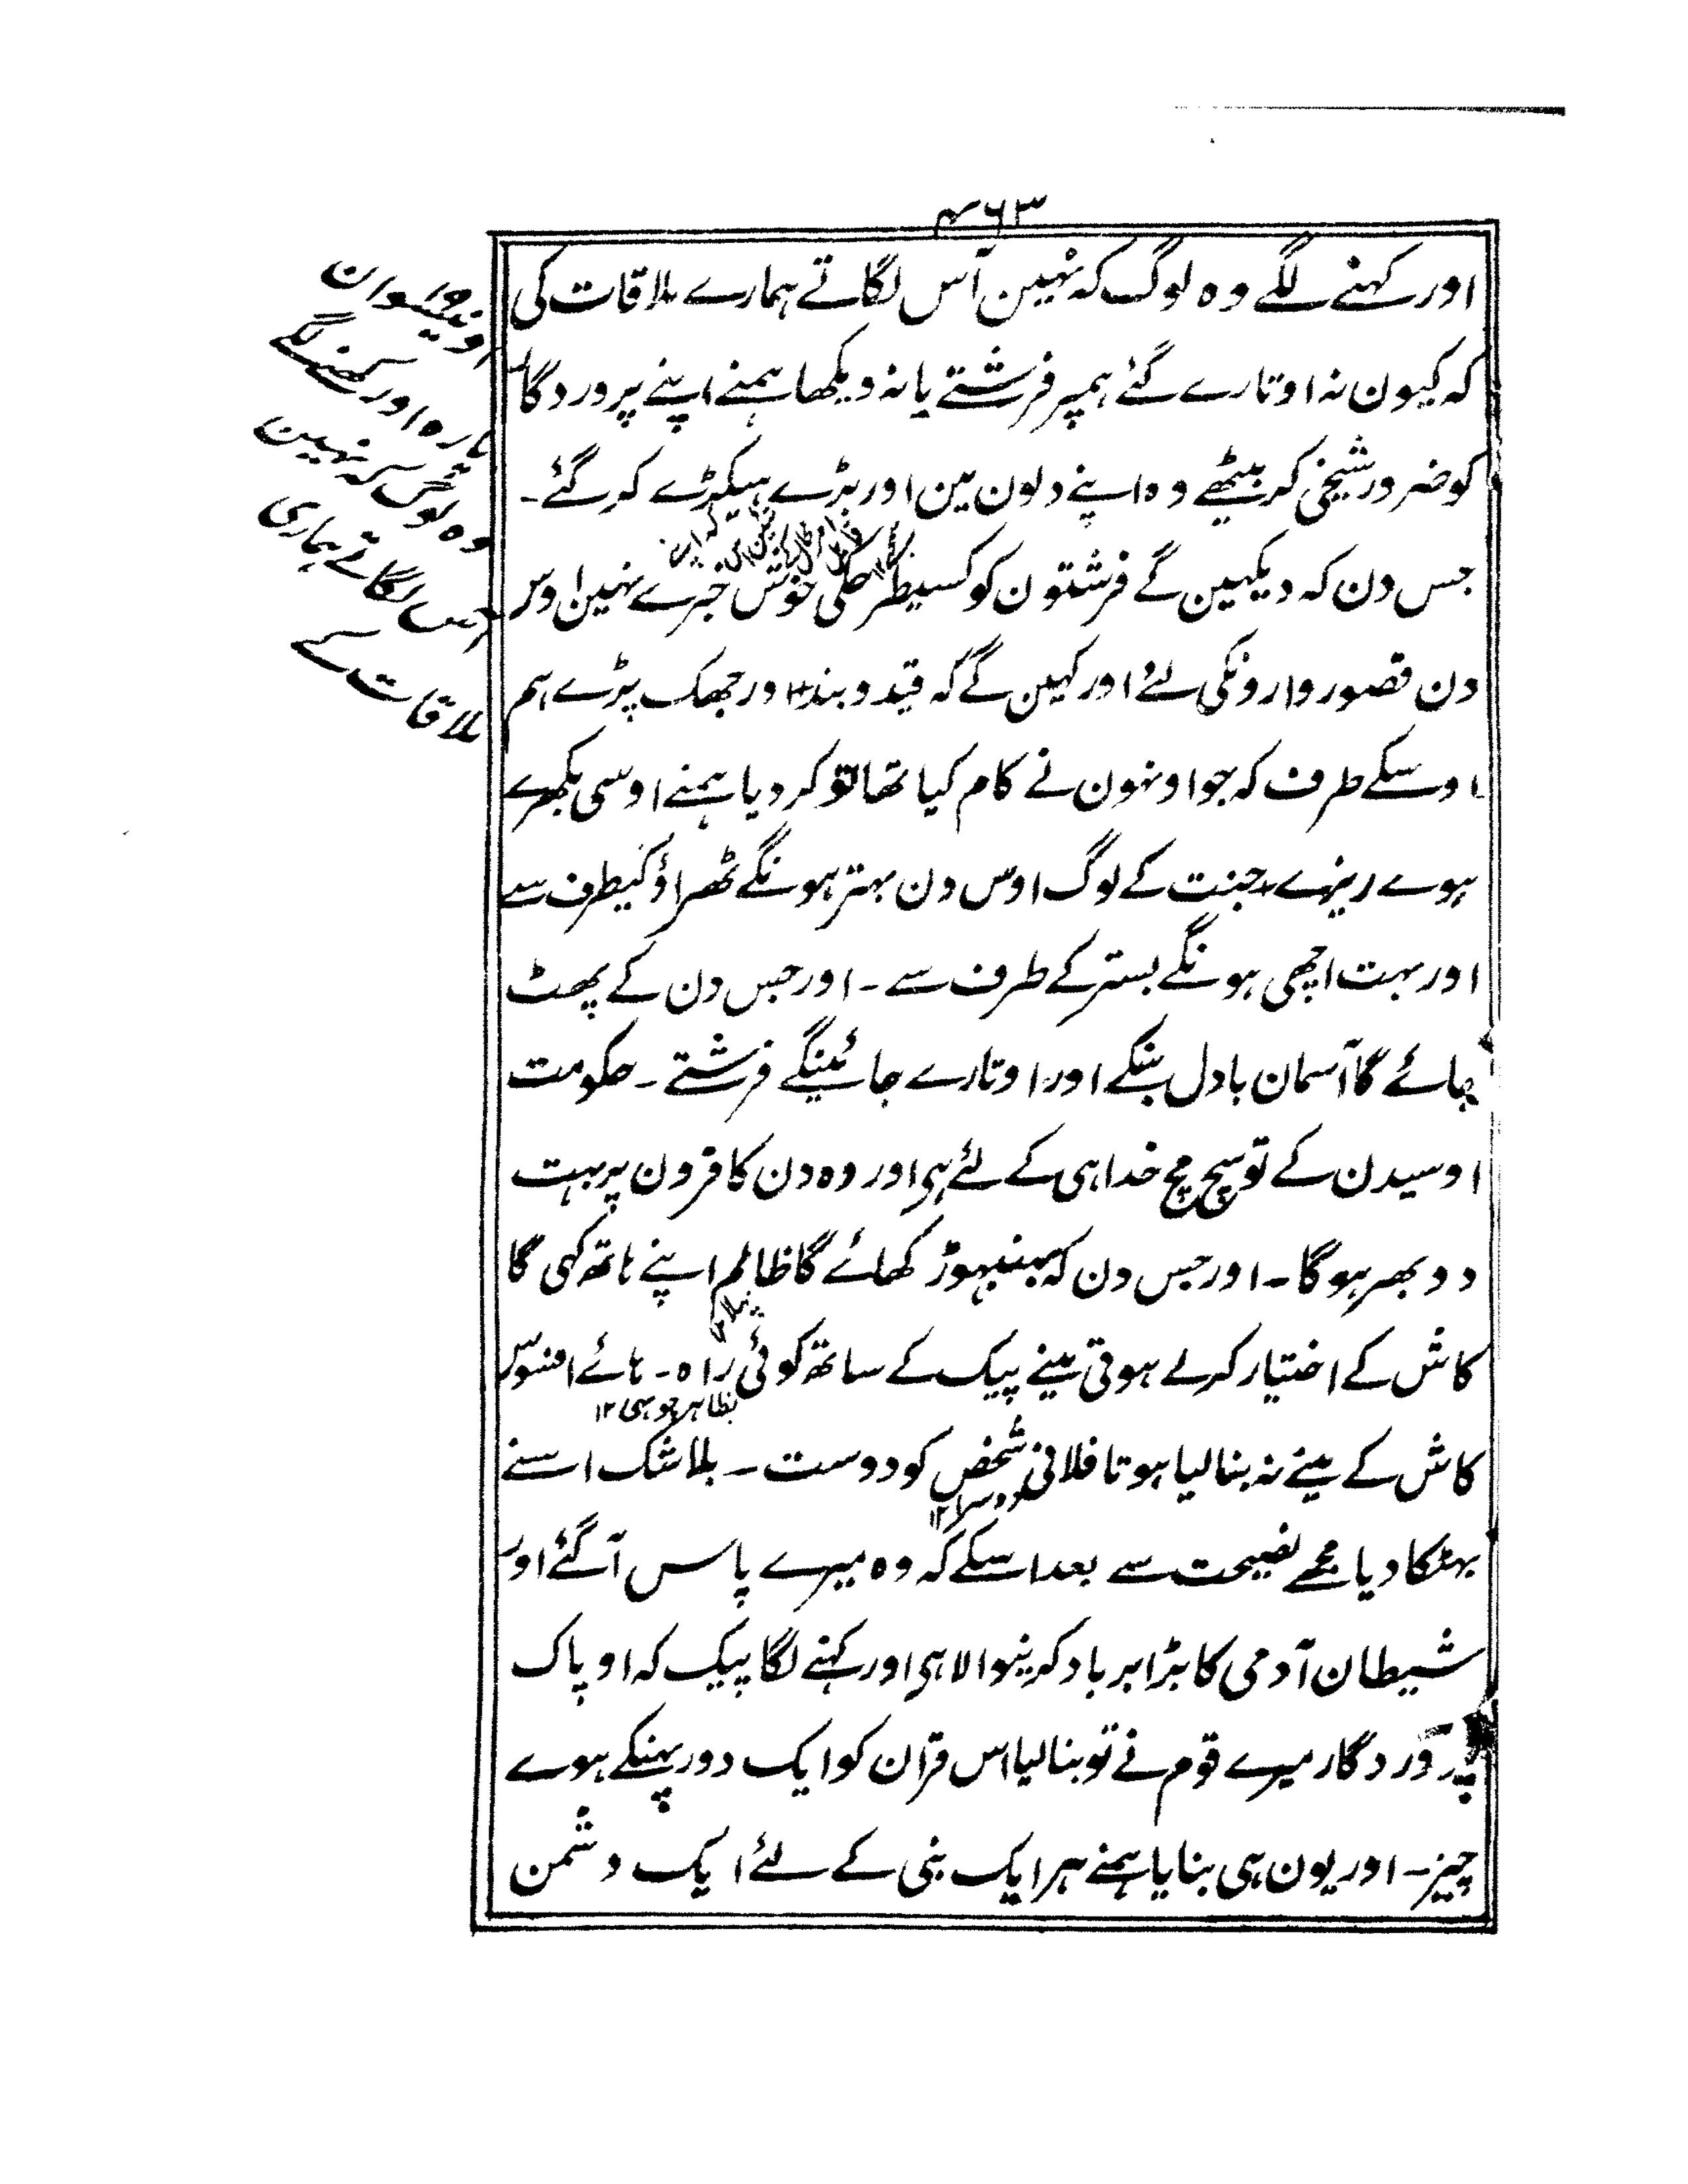 ۴۶۳
اور کہنے لگے وہ لوگ کہ نہین آس لگاتے ہمارے ملاقات کی
کہ کیون نہ اوتارے گئے ہمپر فرشتے یا نہ دیکھا ہمنے اپنے پروردگار
کو ضرور شیخی کر بیٹھے وہ اپنے دلون مین اور بڑے ہیکڑے کر گئے ۔
جس دن کہ دیکہین گے فرشتون کو کسیطرحکی خوش خبرے نہین اوس
دن قصوروارونکی لئے اور کہین گے کہ قید و بند اور جھک پڑے ہم
اوسکے طرف کہ جو اونہون نے کام کیا تھا تو کر دیا ہمنے اوسی بکھرے
ہوے ریزے جنت کے لوگ اوس دن بہتر ہونگے ٹھراؤ کیطرف سے
اور بہت اچھی ہونگے بستر کے طرف سے ۔ اور جس دن کے پھٹ
جائے گا آسمان بادل بنکے اور اوتارے جائینگے فرشتے ۔ حکومت
اوسیدن کے تو سچ مچ خدا ہی کے لئے ہی اور وہ دن کافرون پر بہت
دوبھر ہوگا ۔ اور جس دن کہ بہنبہوڑ کھائے گا ظالم اپنے ہاتھ کہی گا
کاش کے اختیار کرلے ہوتی مینے پیک کے ساتھ کوئی راہ ۔ ہائے افسوس
بظاہر جو ہی ۱۲
کاش کے مینے نہ بنا لیا ہوتا فلانی شخص کو دوست ۔ بلا شک اسنے
دوسرا ۱۲
بہٹکا دیا مجھے نصیحت سے بعد اسکے کہ وہ میرے پاس آگئے اور
شیطان آدمی کا بڑا برباد کرینوالا ہی اور کہنے لگا پیک کہ او پاک
پروردگار میرے قوم نے تو بنا لیا اس قرآن کو ایک دور پہنکے ہوے
چیز ۔ اور یون ہی بنایا ہمنے ہر ایک نبی کے لئے ایک دشمن
اونیسوان
پارہ اور کہنے لگے
وہ لوگ کہ نہین
آس لگاتے ہماری
ملاقات کے